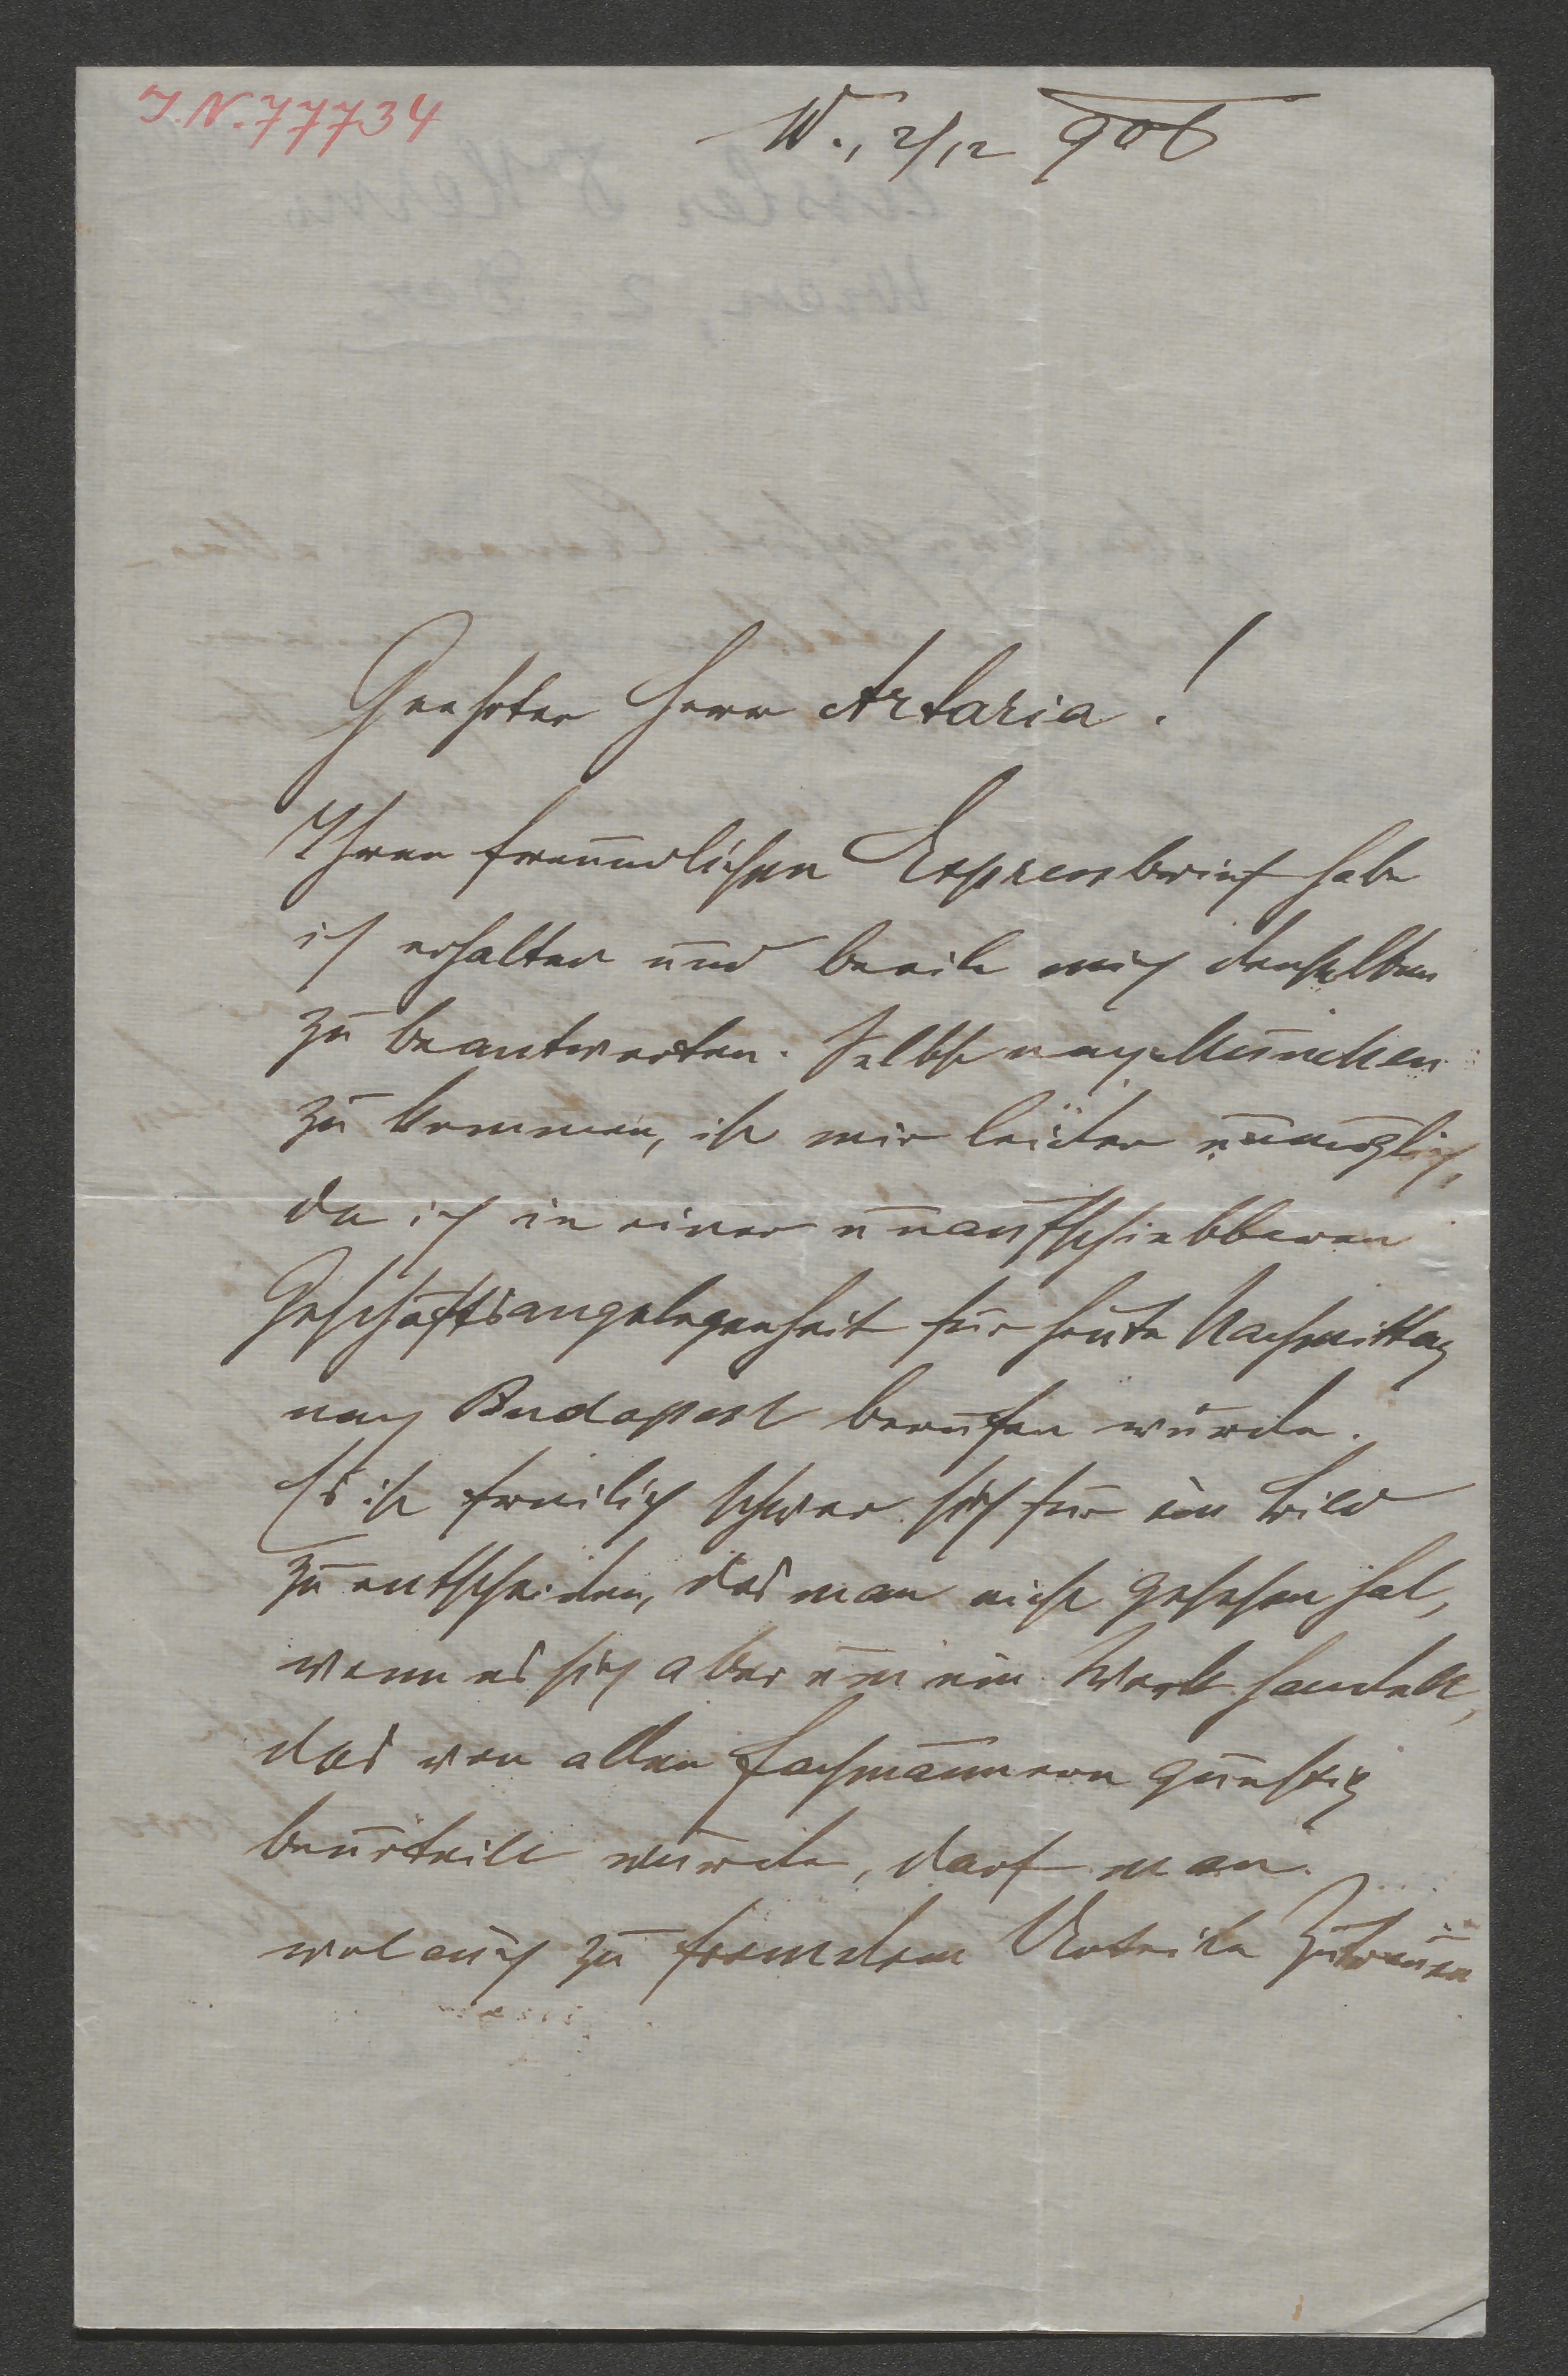 J.N. 77734
W., 2/12 906
Geehrter Herr Artaria!
Ihren freundlichen Expressbrief habe
ich erhalten und beeile mich denselben
zu beantworten. Selbst nach München
zu kommen, ist mir leider unmöglich,
da ich in einer unaufschiebbaren
Geschäftsangelegenheit für heute Nachmittag
nach Budapest berufen wurde.
Es ist freilich schwer sich für ein Bild
zu entscheiden, das man nicht gesehen hat,
wenn es sich aber um ein Werk handelt,
das von allen Fachmännern günstig
beurteilt wurde, darf man
wol auch zu fremdem Urteile Zutrauen